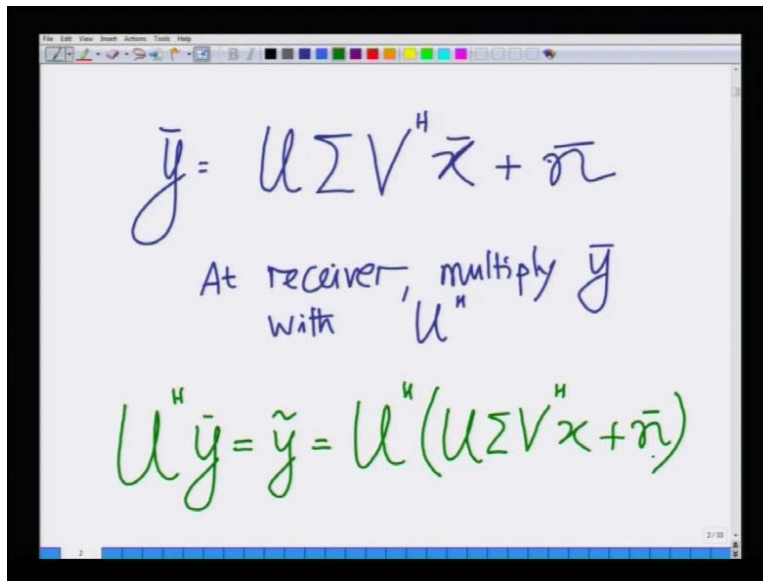 File Edit View Insert Actions Tools Help
B I
ȳ = U Σ V^H x̄ + n̄
At receiver, multiply ȳ
with U^H
U^H ȳ = ỹ = U^H (U Σ V^H x + n̄)
2/33
2